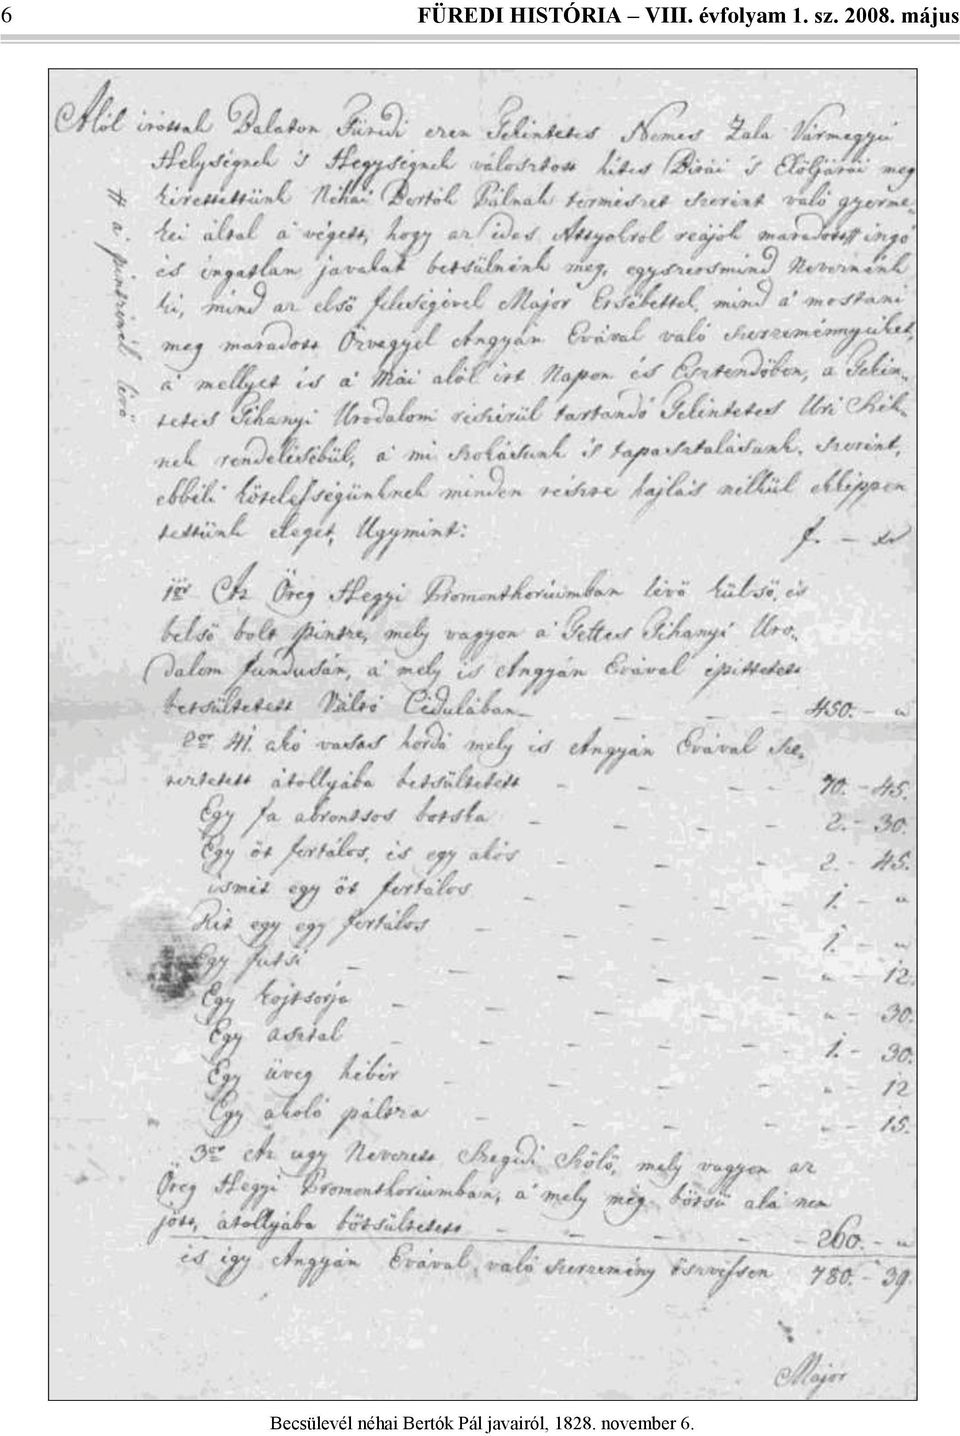 6 FÜREDI HISTÓRIA – VIII. évfolyam 1. sz. 2008. május
Alól irottak Balaton Füredi ezen Tekintetes Nemes Zala Vármegyei
Helységnek 's Hegységnek választott hites Birái 's Elöljárói meg
kirettettünk Néhai Bertók Pálnak természet szerint való gyerme-
kei által a' végett, hogy az édes Attyokrol reájok maradott # ingó
és ingatlan javakat betsülnénk meg, egyszersmind Neveznénk
ki, mind az elsö feleségével Major Ersébettel, mind a' mostani
meg maradott Özvegyel Angyán Évával való szerzeményeiket,
a' mellyet is a' Mái alól irt Napon és Esztendöben, a Tekin-
tetes Tihanyi Urodalom részérül tartandó Tekintetes Uri Szék-
nek rendelésébül, a' mi szokásunk 's tapasztalásunk szerint,
ebbéli kötelességünknek minden részre hajlás nélkül ekképpen
tettünk eleget, Ugymint: f. – xr
# a' pintzénél lévö
1ör Az Öreg Hegyi Promonthoriumban lévö külsö, és
belsö bolt pintze, mely vagyon a' Tettes Tihanyi Uro-
dalom fundusán, a' mely is Angyán Évával épittetett
betsültetett Váltó Cédulában – – – – 450. – "
2or 41. akó vasas hordó mely is Angyán Évával sze-
reztetett átollyába betsültetett – – – – 70. – 45.
Egy fa abrontsos botska – – – – 2. – 30.
Egy öt fertálos, és egy akós – – – – 2. – 45.
ismét egy öt fertálos – – – – 1. – "
Két egy egy fertálos – – – – 1. – "
Egy – – – – " – 12.
Egy – – – – " – 30.
Egy asztal – – – – 1. – 30.
Egy üveg hébér – – – – " – 12
Egy akoló páltza – – – – " – 15.
3or Az ugy Nevezett Szegedi Szölö, mely vagyon az
Öreg Hegyi Promonthoriumban, a' mely még bötsü alá nem
jött, átollyába bötsültetett – – – – 260. – "
és igy Angyán Évával való szerzemény öszvessen 780. – 39.
Major
Becsülevél néhai Bertók Pál javairól, 1828. november 6.